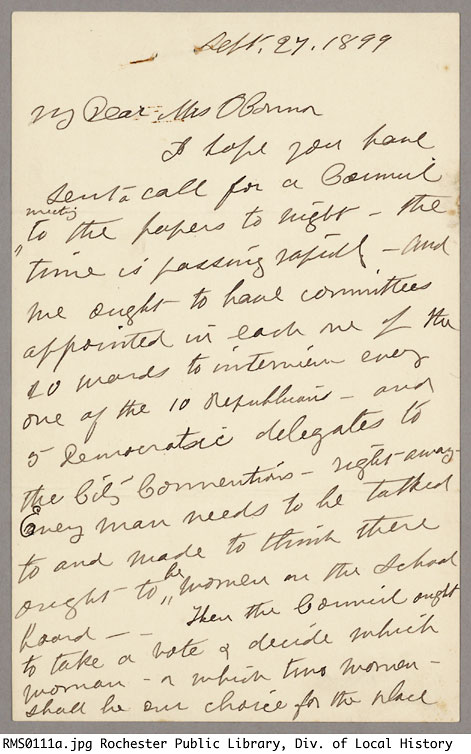 Sept. 27. 1899
My Dear Mrs O'Connor
I hope you have
sent a call for a Council
meeting
" to the papers to night - the
time is passing rapidly - and
we ought to have committees
appointed in each one of the
20 wards to interview every
one of the 10 Republicans - and
5 Democratsic delegates to
the City Conventions - right away -
Every man needs to be talked
to and made to think there
be
ought to " women on the School
board - - Then the Council ought
to take a vote & decide which
woman - or which two women -
shall be our choice for the place
RMS0111a.jpg Rochester Public Library, Div. of Local History